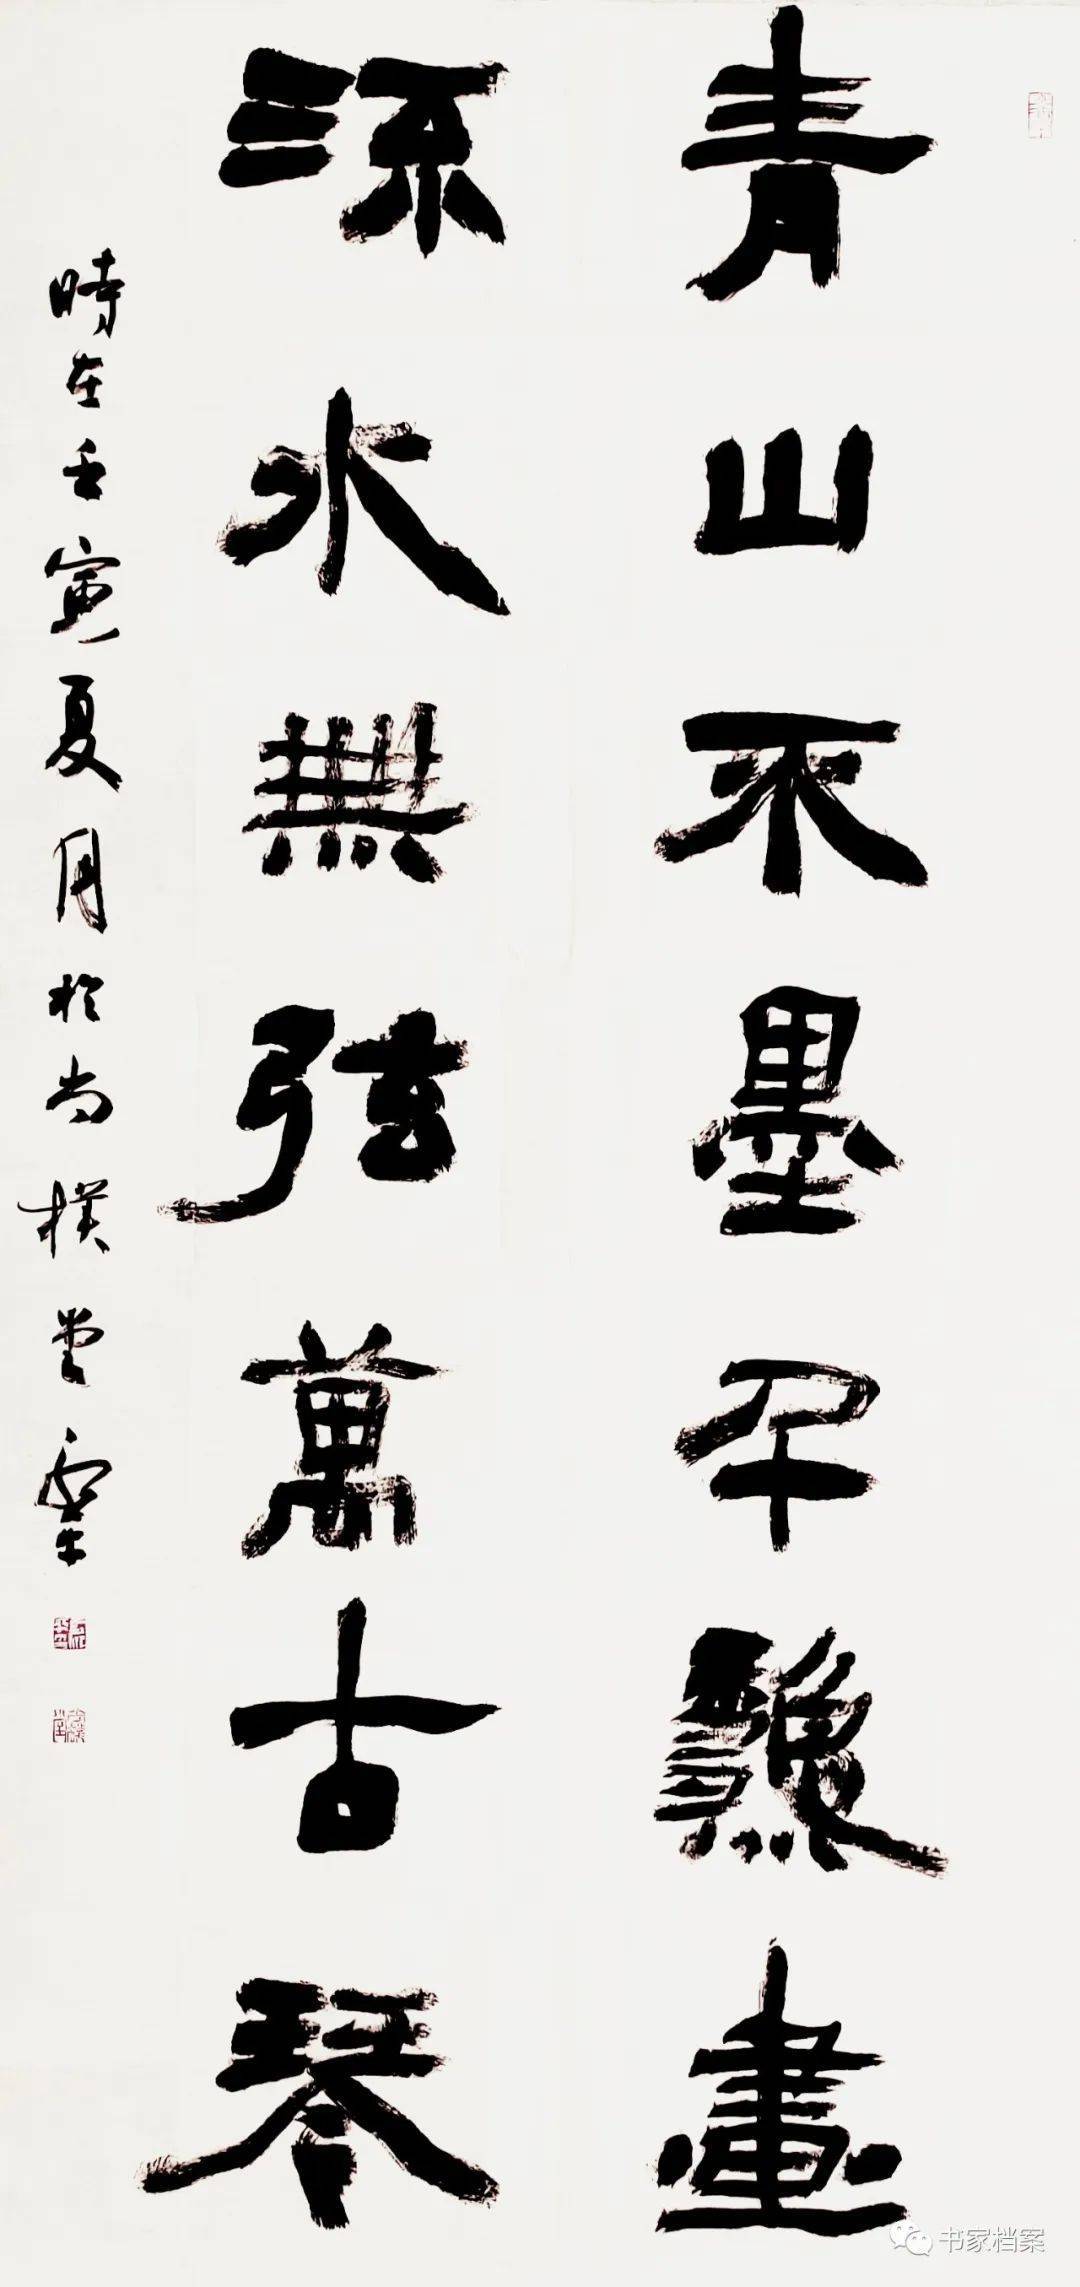 青山不墨千秋畫
流水無弦萬古琴
時在壬寅夏月於尚樸堂
书家档案